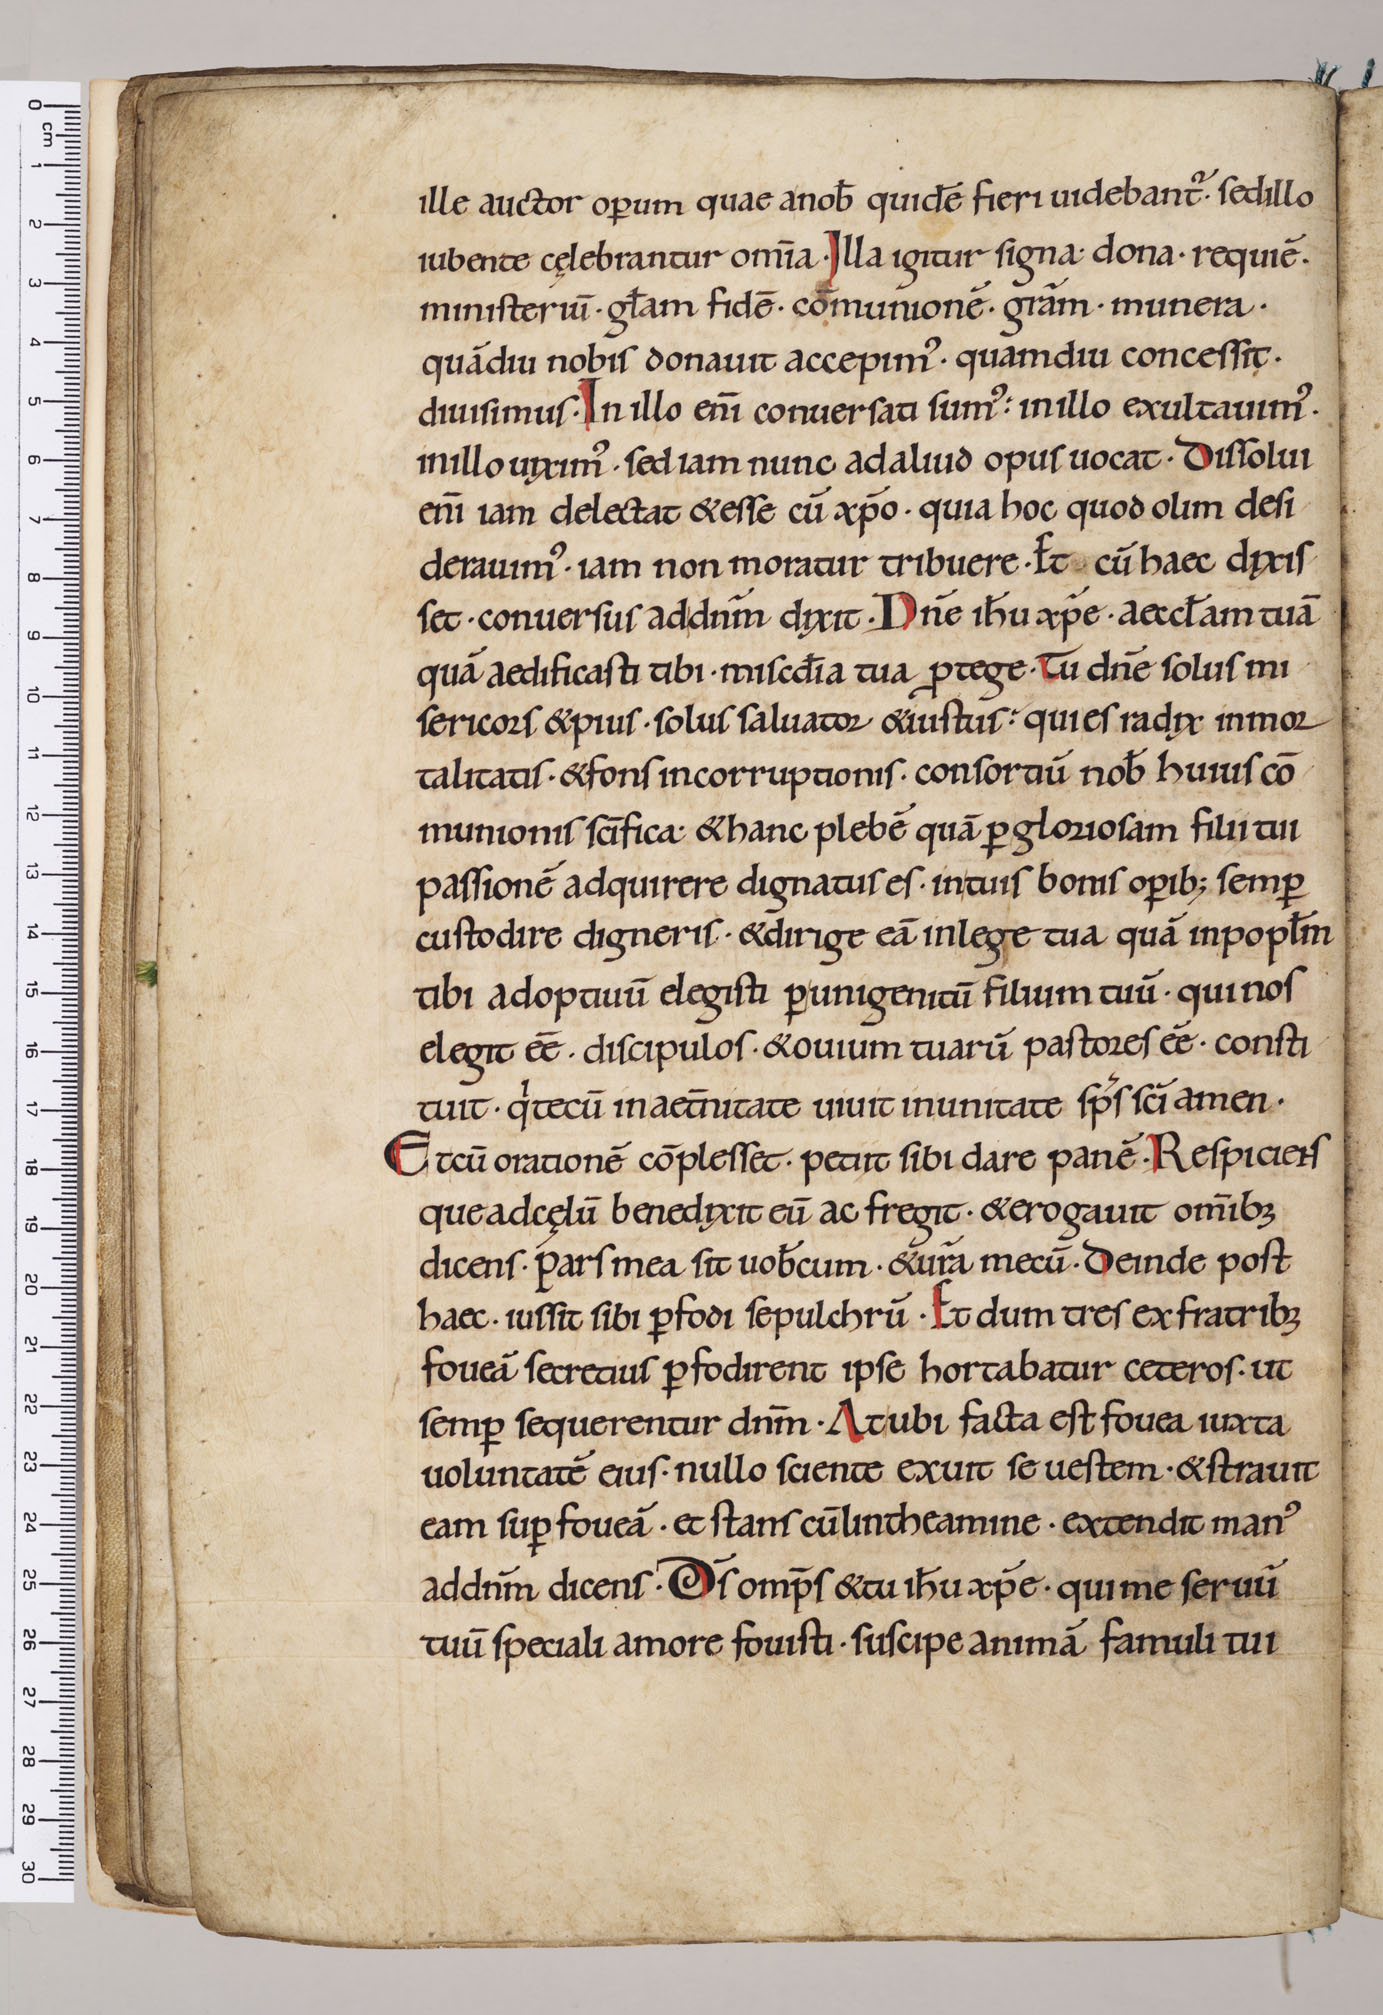 ille auctor operum quae anob̄ quidē fieri uidebant᷑· sed illo
iubente cęlebrantur om̄ia· Illa igitur signa· dona· requiē·
ministeriū· gl̄am fidē· cōmunionē· grām· munera·
quādiu nobis donauit accepimꝰ· quamdiu concessit·
diuisimus· In illo eni̅ conuersati sumꝰ: in illo exultauimꝰ·
in illo uiximꝰ· sed iam nunc ad aliud opus uocat· Dissolui
eni̅ iam delectat & esse cū xp̄o· quia hoc quod olim desi
derauimꝰ· iam non moratur tribuere· Et cū haec dixis
set· conuersus ad dn̄m dixit· Dn̄e ih̄u xp̄e· aeccl̄am tuā
quā aedificasti tibi· miscd̄ia tua ꝓtege· Tu dn̄e solus mi
sericors & pius· solus saluator & iustus: qui es radix inmor
talitatis· & fons incorruptionis· consortiū nob̄ huius cō
munionis sc̄ifica· & hanc plebē quā ꝑ gloriosam filii tui
passionē adquirere dignatus es· in tuis bonis oꝑib; semꝑ
custodire digneris· & dirige eā in lege tua quā in popl̄m
tibi adoptiuū elegisti ꝑ unigenitū filium tuū· qui nos
elegit ēē· discipulos· & ouium tuarū pastores ēē· consti
tuit· qͥ tecū in aet̄nitate uiuit in unitate sp̄s sc̄i amen·
Et cū orationē cōplesset· petiit sibi dare panē· Respiciens
que ad cęlū benedixit eū ac fregit· & erogauit om̄ibꝫ
dicens· Pars mea sit uob̄cum· & ur̄a mecū· Deinde post
haec· iussit sibi ꝑfodi sepulchrū· Et dum tres ex fratribꝫ
foueā secretius ꝑfodirent ipse hortabatur ceteros· ut
semꝑ sequerentur dn̄m· At ubi facta est fouea iuxta
uoluntatē eius· nullo sciente exuit se uestem· & strauit
eam suꝑ foueā· et stans cū lintheamine· extendit manꝰ
ad dn̄m dicens· Ds̄ omp̄s & tu ih̄u xp̄e· qui me seruū
tuū speciali amore fouisti· suscipe animā famuli tui
0 cm 1 2 3 4 5 6 7 8 9 10 11 12 13 14 15 16 17 18 19 20 21 22 23 24 25 26 27 28 29 30